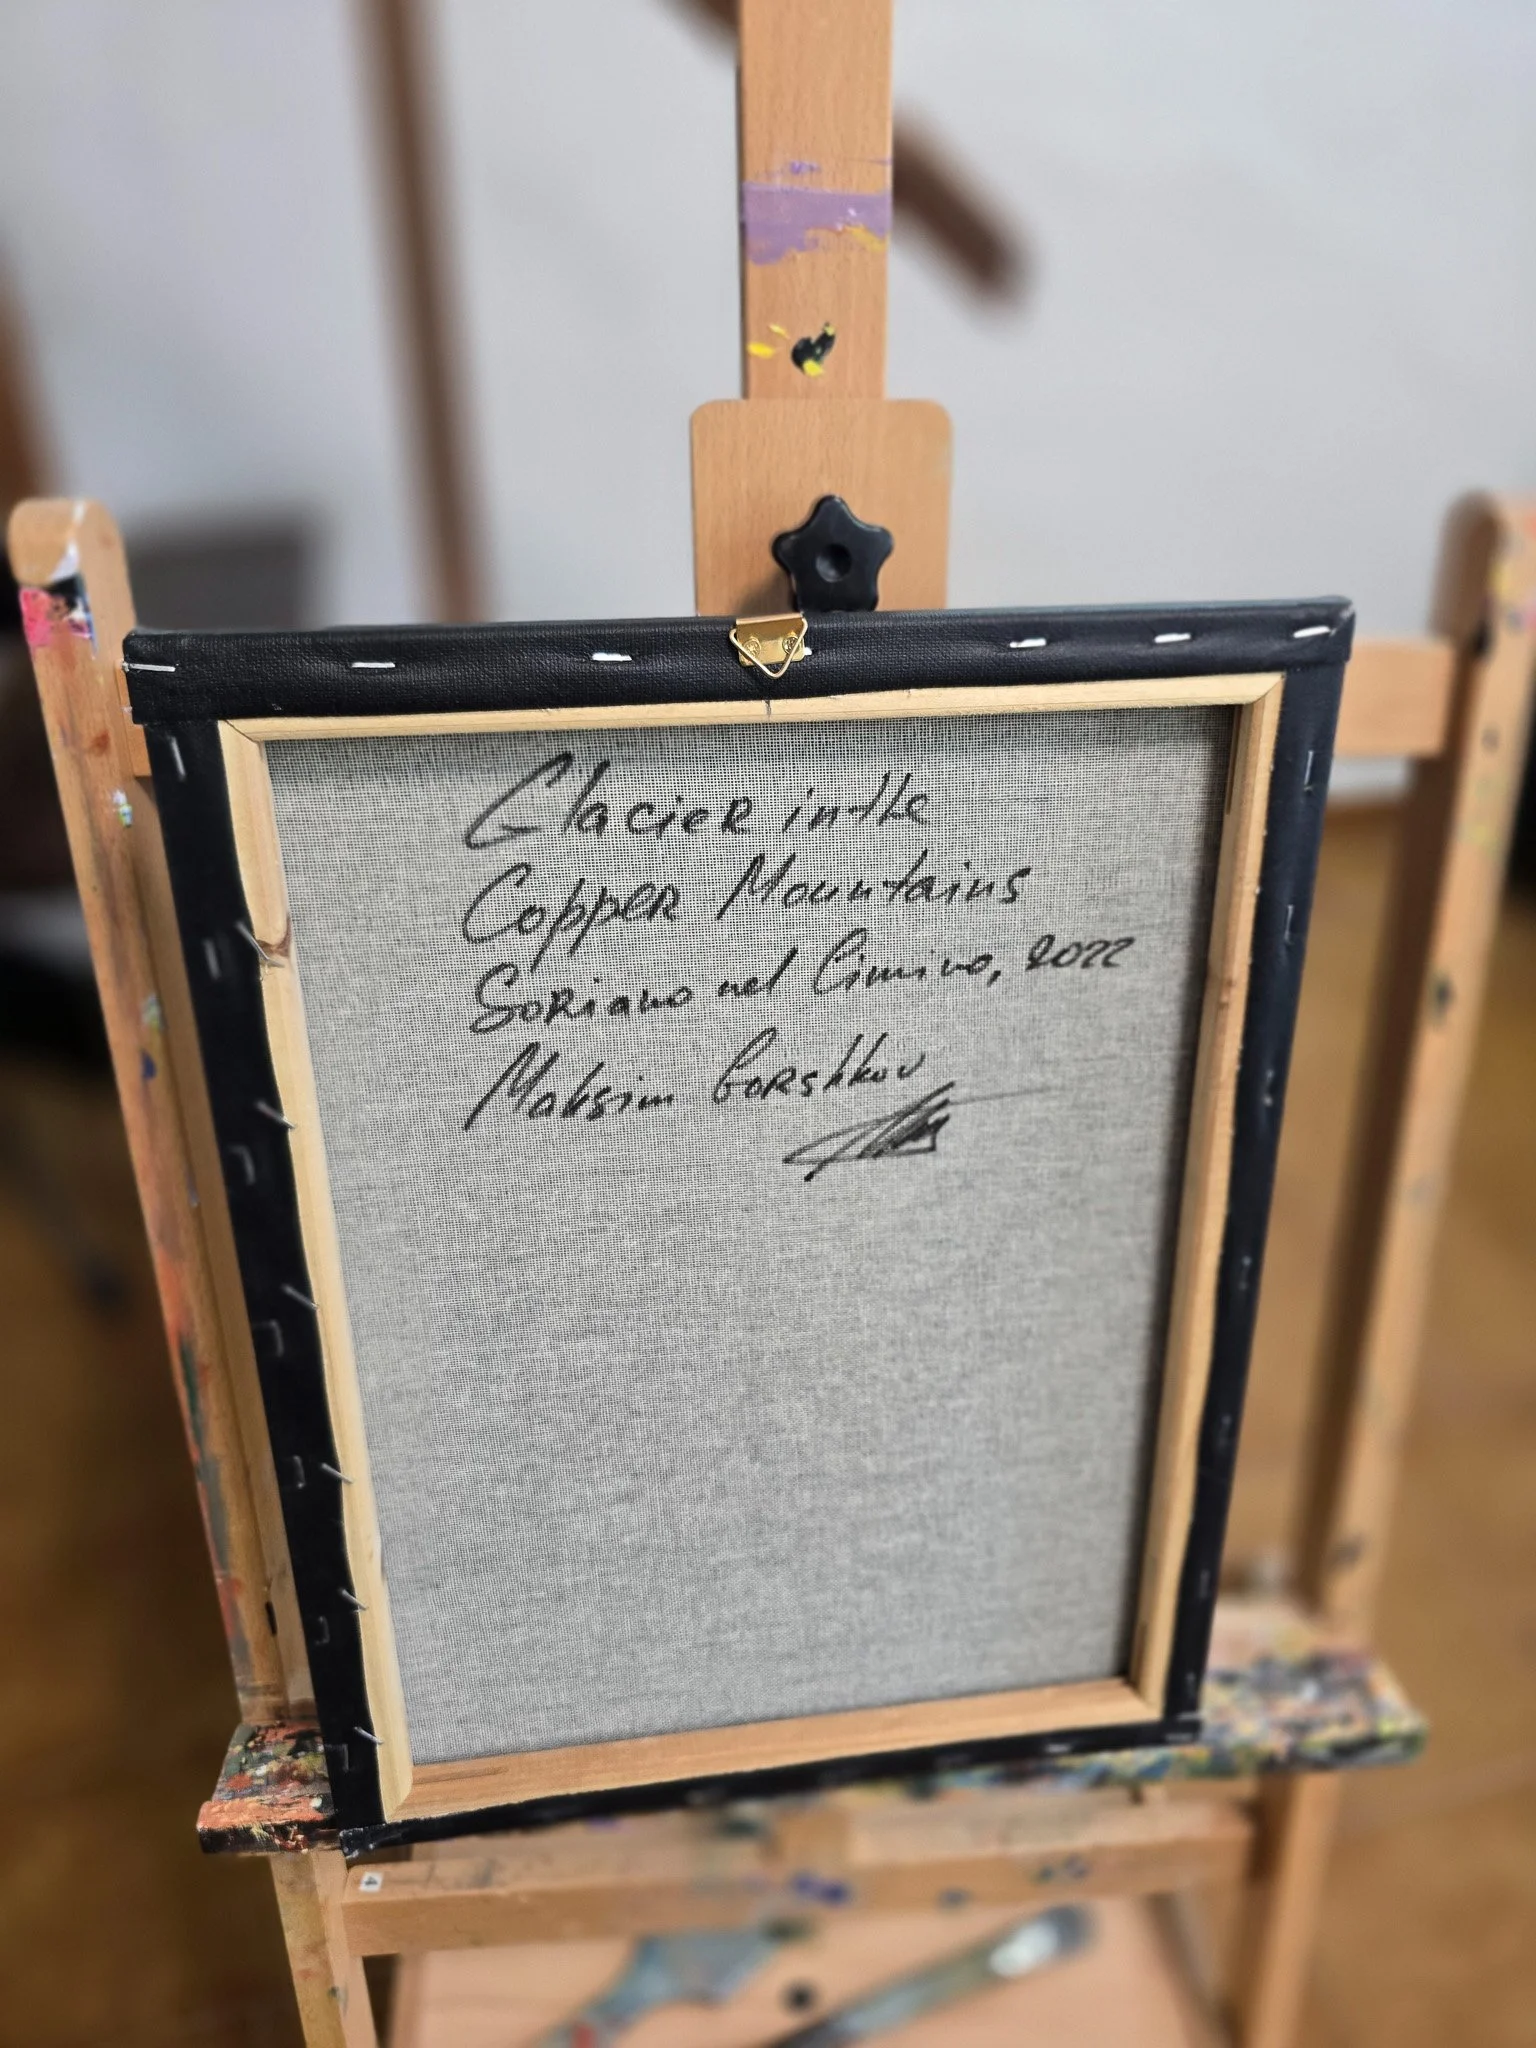 Glacier in the
Copper Mountains
Soriano nel Cimino, 2022
Maksim Gorshkov
4